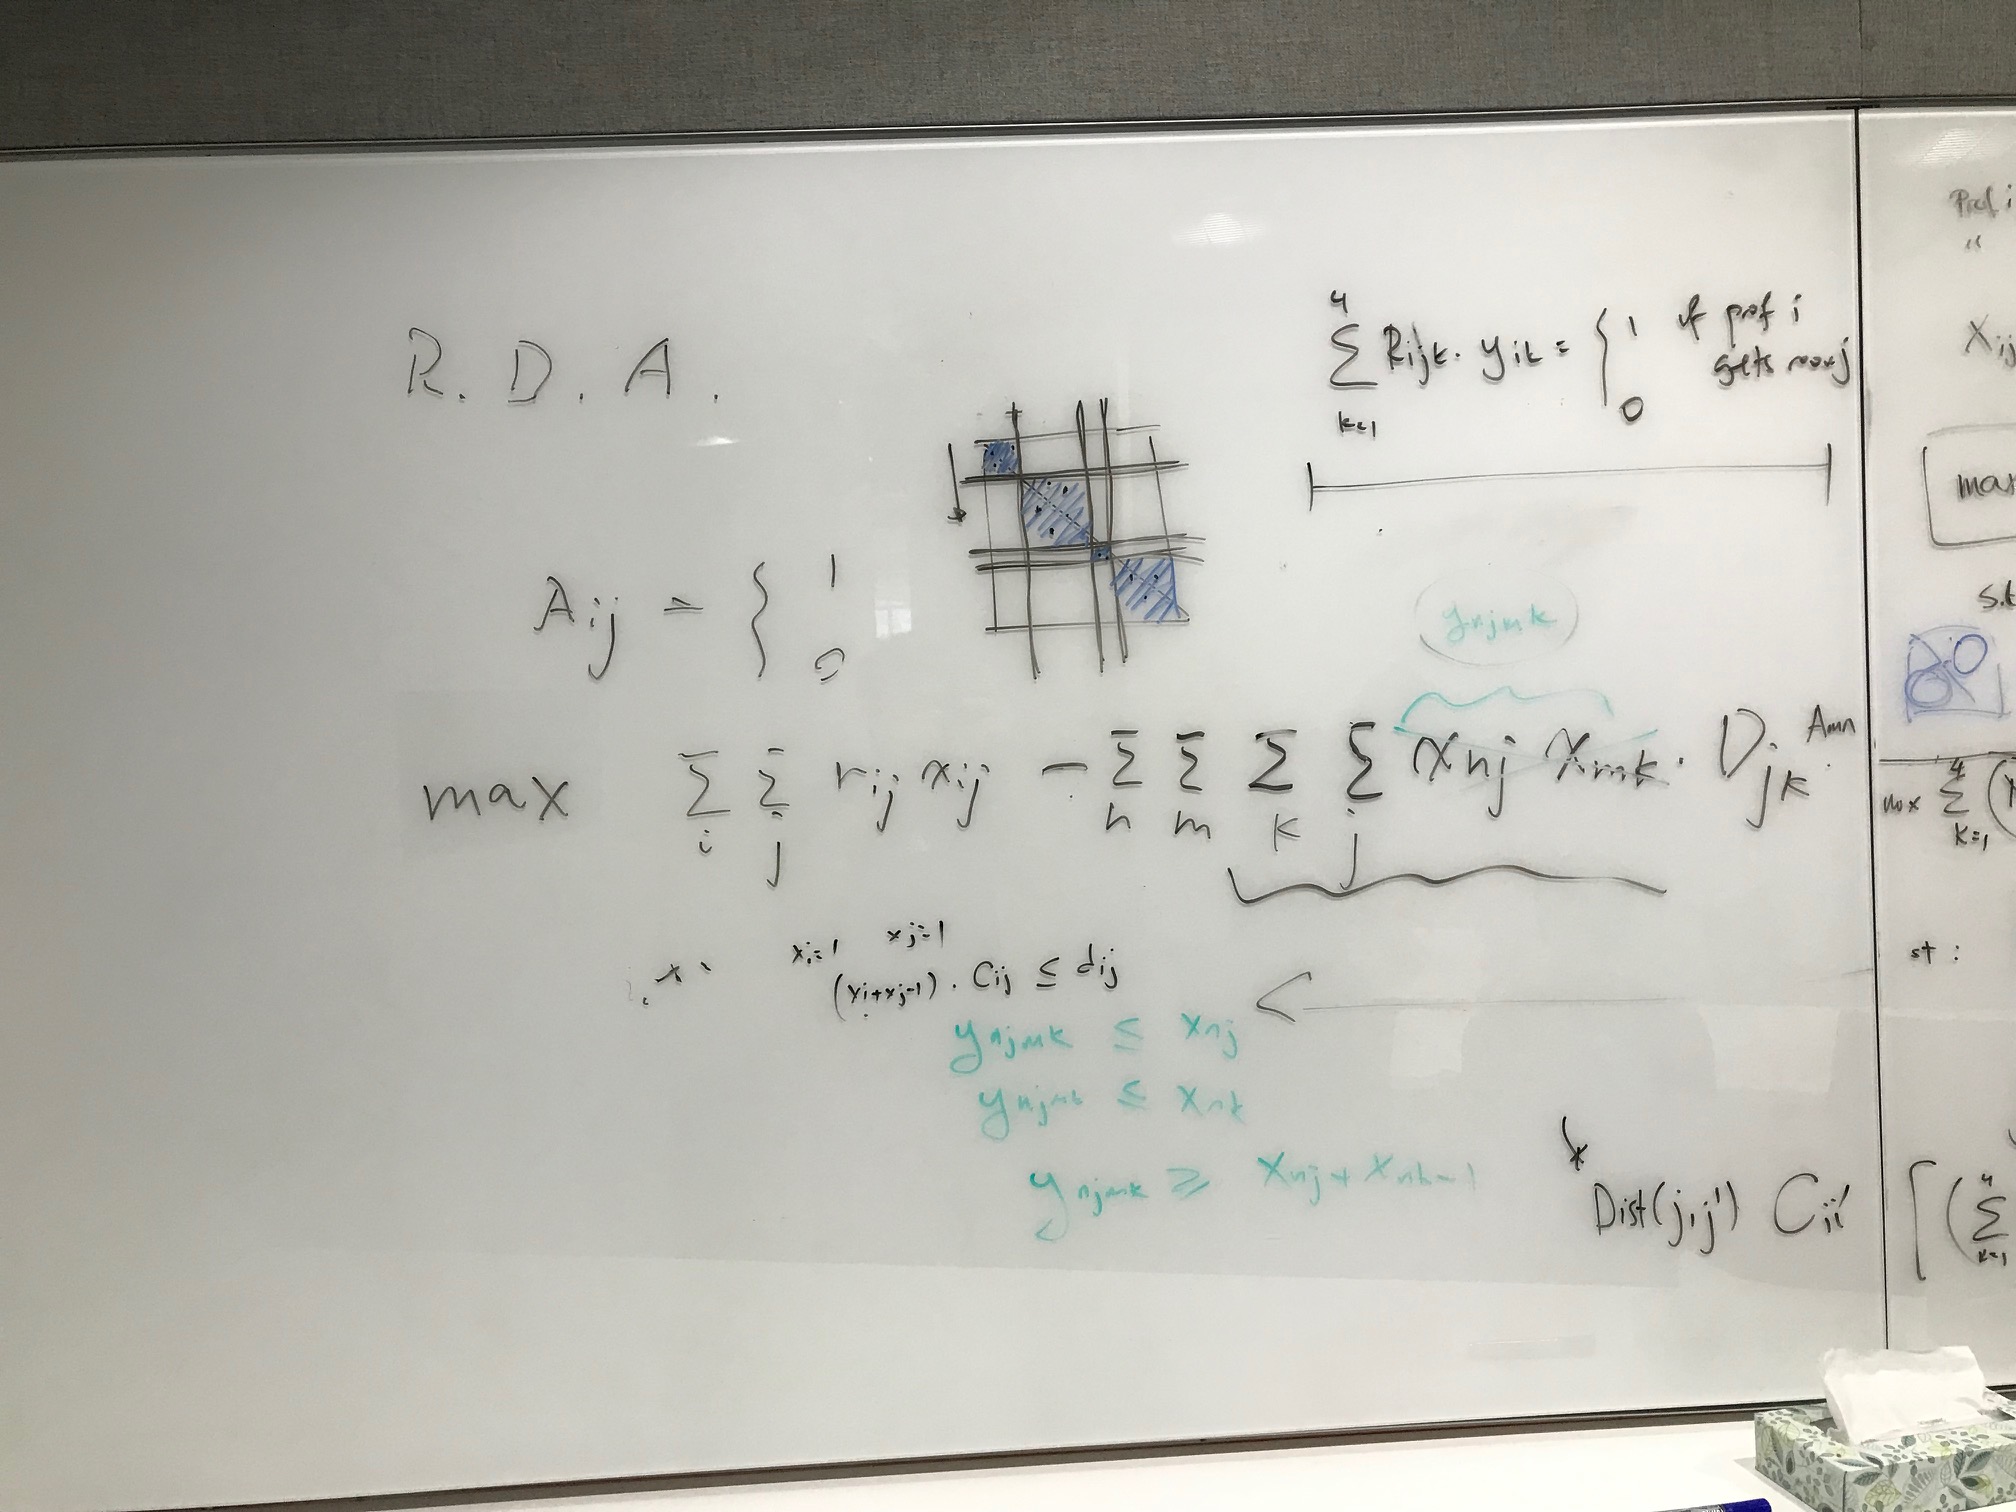 R. D. A.
4
∑ Rijk · yik = { 1 if prof i
gets room j
k=1
0
Aij = { 1
0
ynjmk
max ∑i ∑j rij xij - ∑n ∑m ∑k ∑j xnj xmk · Djk Amn
xi=1 xj=1
(xi+xj-1) · Cij ≤ dij
ynjmk ≤ xnj
ynjmk ≤ xnk
ynjmk ≥ xnj + xnk - 1
Dist(j,j') Cii'
Prof i
"
Xij
max
s.t
max ∑ (
4
k=1
st :
[ ( ∑
4
k=1